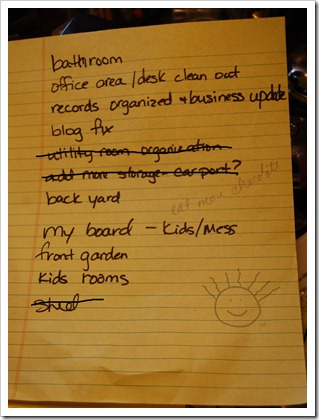 bathroom
office area/desk clean out
records organized & business update
blog fix
utility room organization
add more storage - carport?
back yard
eat more chocolate
my board - Kids/Mess
front garden
Kids rooms
shed